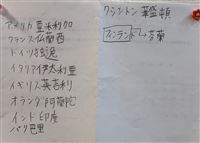 アメリカ 亜米利加
フランス 仏蘭西
ドイツ 独逸
イタリア 伊太利亜
イギリス 英吉利
オランダ 阿蘭陀
インド 印度
パリ 巴里
ワシントン 華盛頓
フィンランド 芬蘭